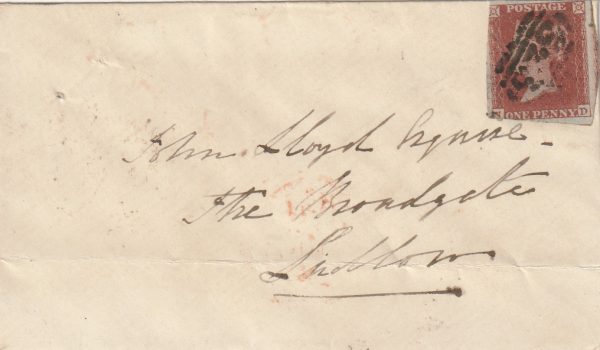 POSTAGE
ONE PENNY D
John Lloyd Esquire
The Broadgate
Ludlow